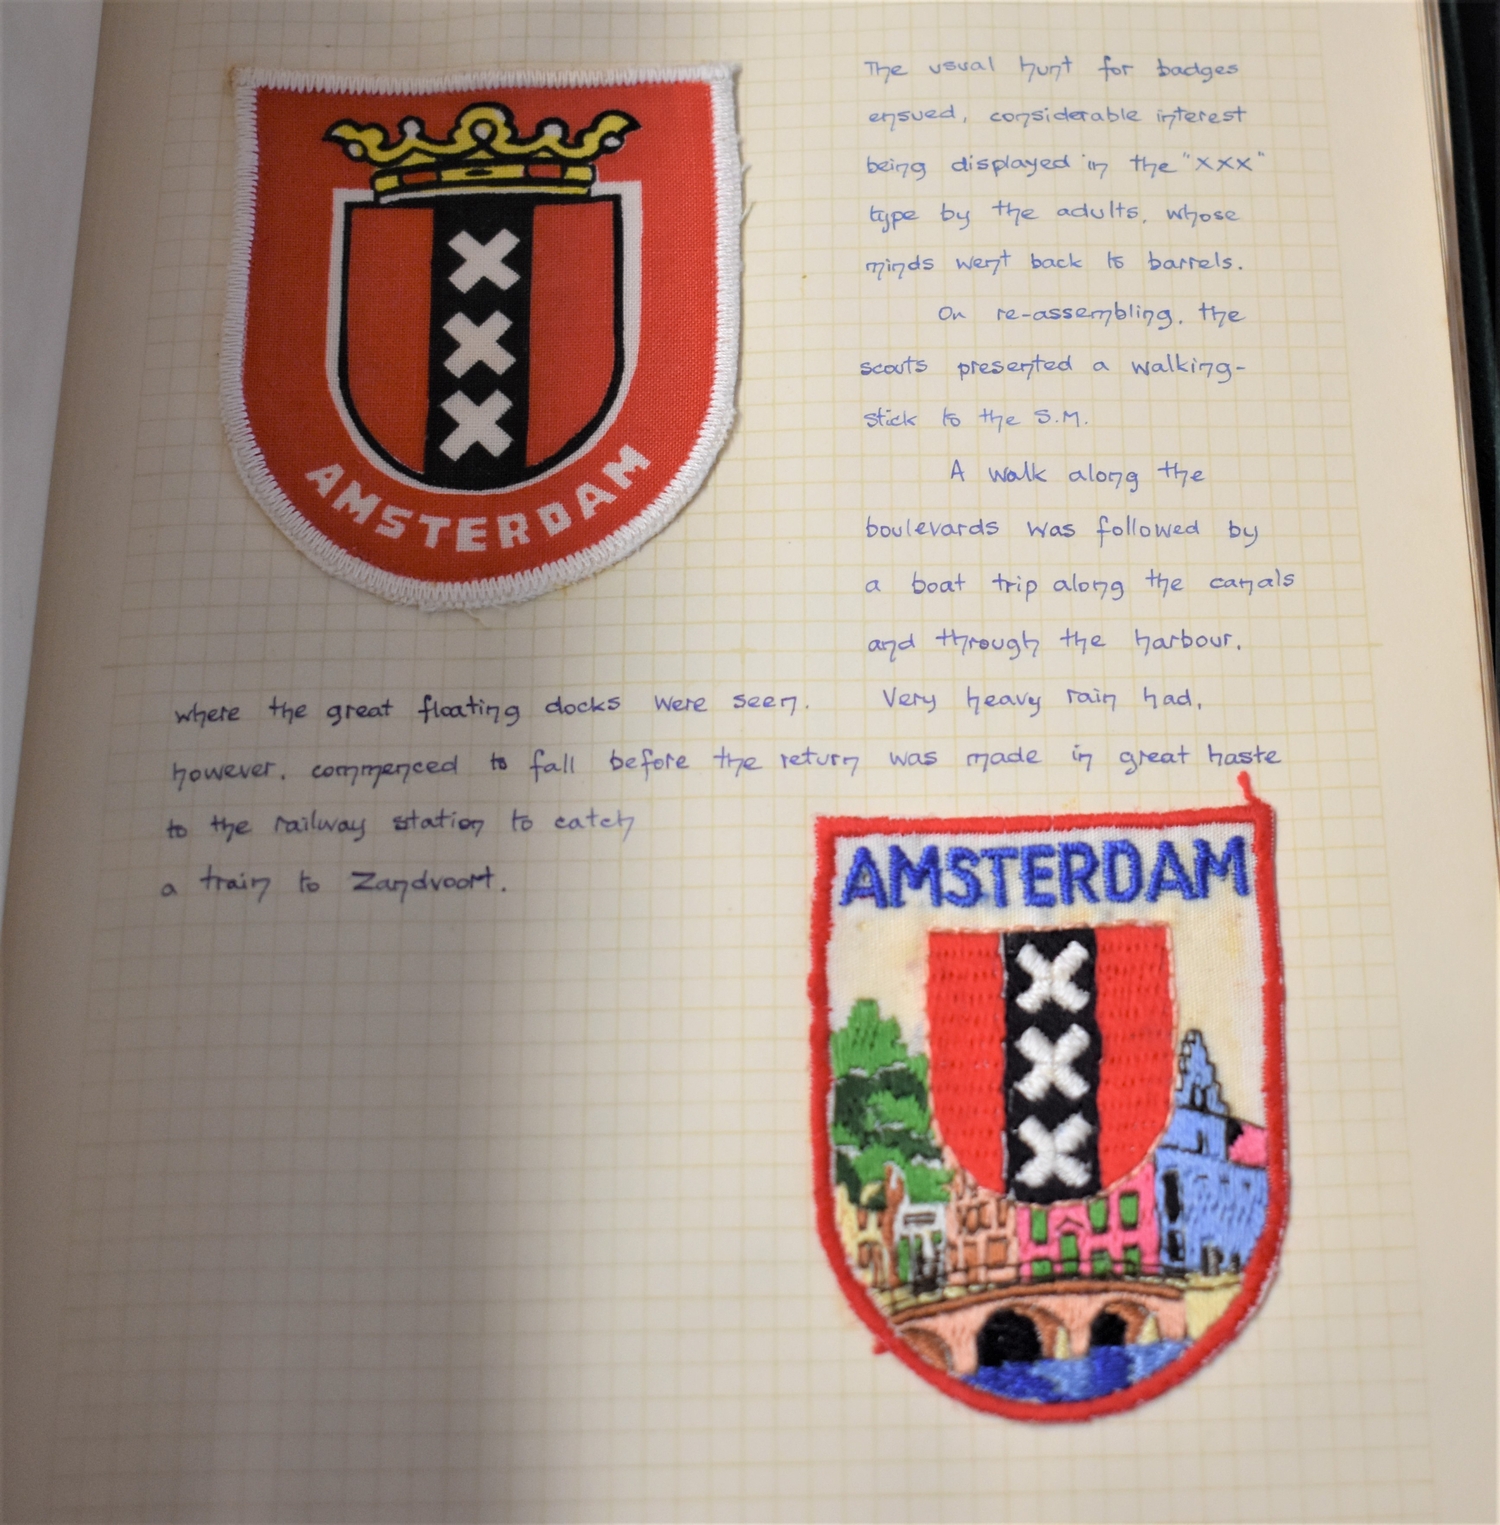 AMSTERDAM
The usual hunt for badges
ensued, considerable interest
being displayed in the "XXX"
type by the adults, whose
minds went back to barrels.
On re-assembling, the
scouts presented a walking-
stick to the S.M.
A walk along the
boulevards was followed by
a boat trip along the canals
and through the harbour,
where the great floating docks were seen. Very heavy rain had,
however, commenced to fall before the return was made in great haste
to the railway station to catch
a train to Zandvoort.
AMSTERDAM